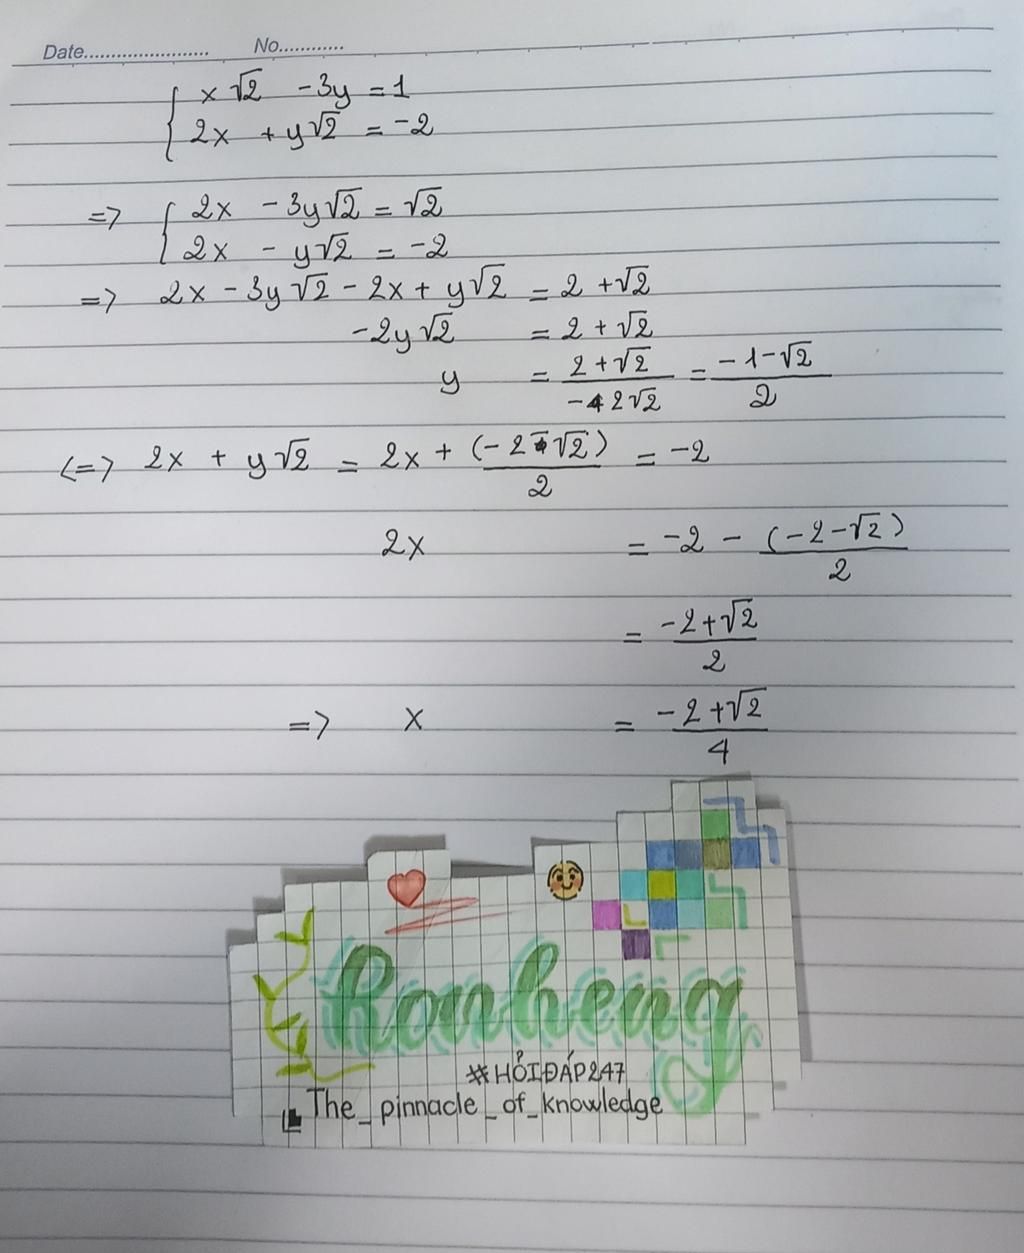 Date...................... No............
{ x√2 - 3y = 1
2x + y√2 = -2
=> { 2x - 3y√2 = √2
2x - y√2 = -2
=> 2x - 3y√2 - 2x + y√2 = 2 + √2
-2y√2 = 2 + √2
y = (2 + √2)/(-2√2) = (-1-√2)/2
<=> 2x + y√2 = 2x + (-2-√2)/2 = -2
2x = -2 - (-2-√2)/2
= (-2+√2)/2
=> x = (-2+√2)/4
Romheng
#HỎIĐÁP247
The_pinnacle_of_knowledge